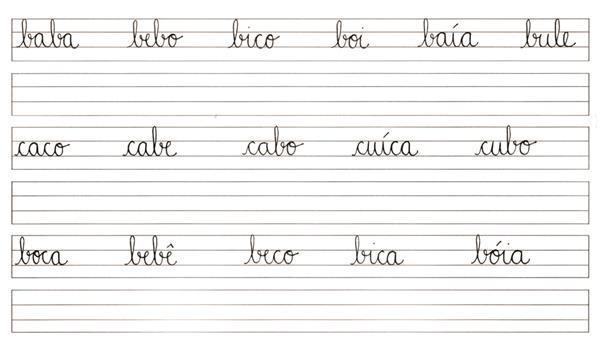 baba bebo bico boi baía bule
caco cabe cabo cuíca cubo
boca bebê beco bica bóia